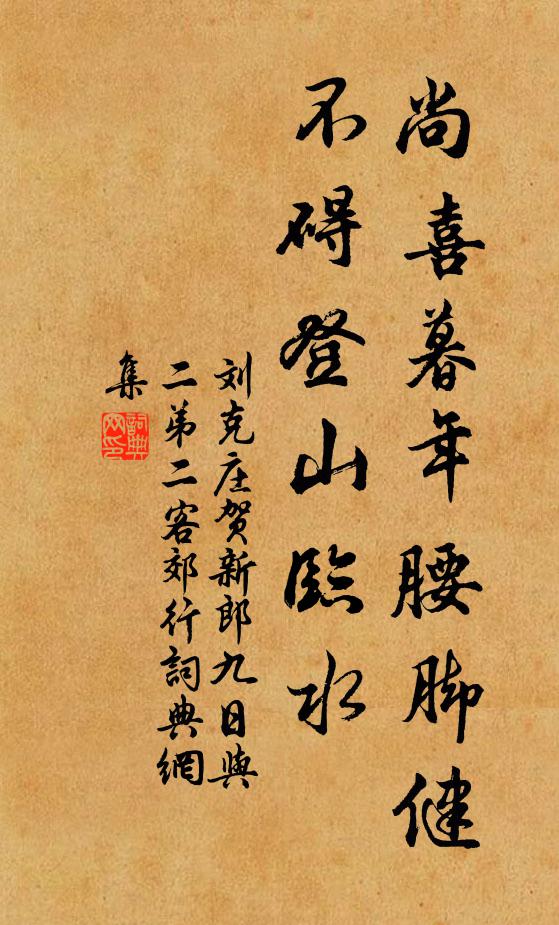 尚喜暮年腰脚健
不碍登山臨水
刘克庄贺新郎九日與
二弟二客郊行詞典網
集
詞典
网印